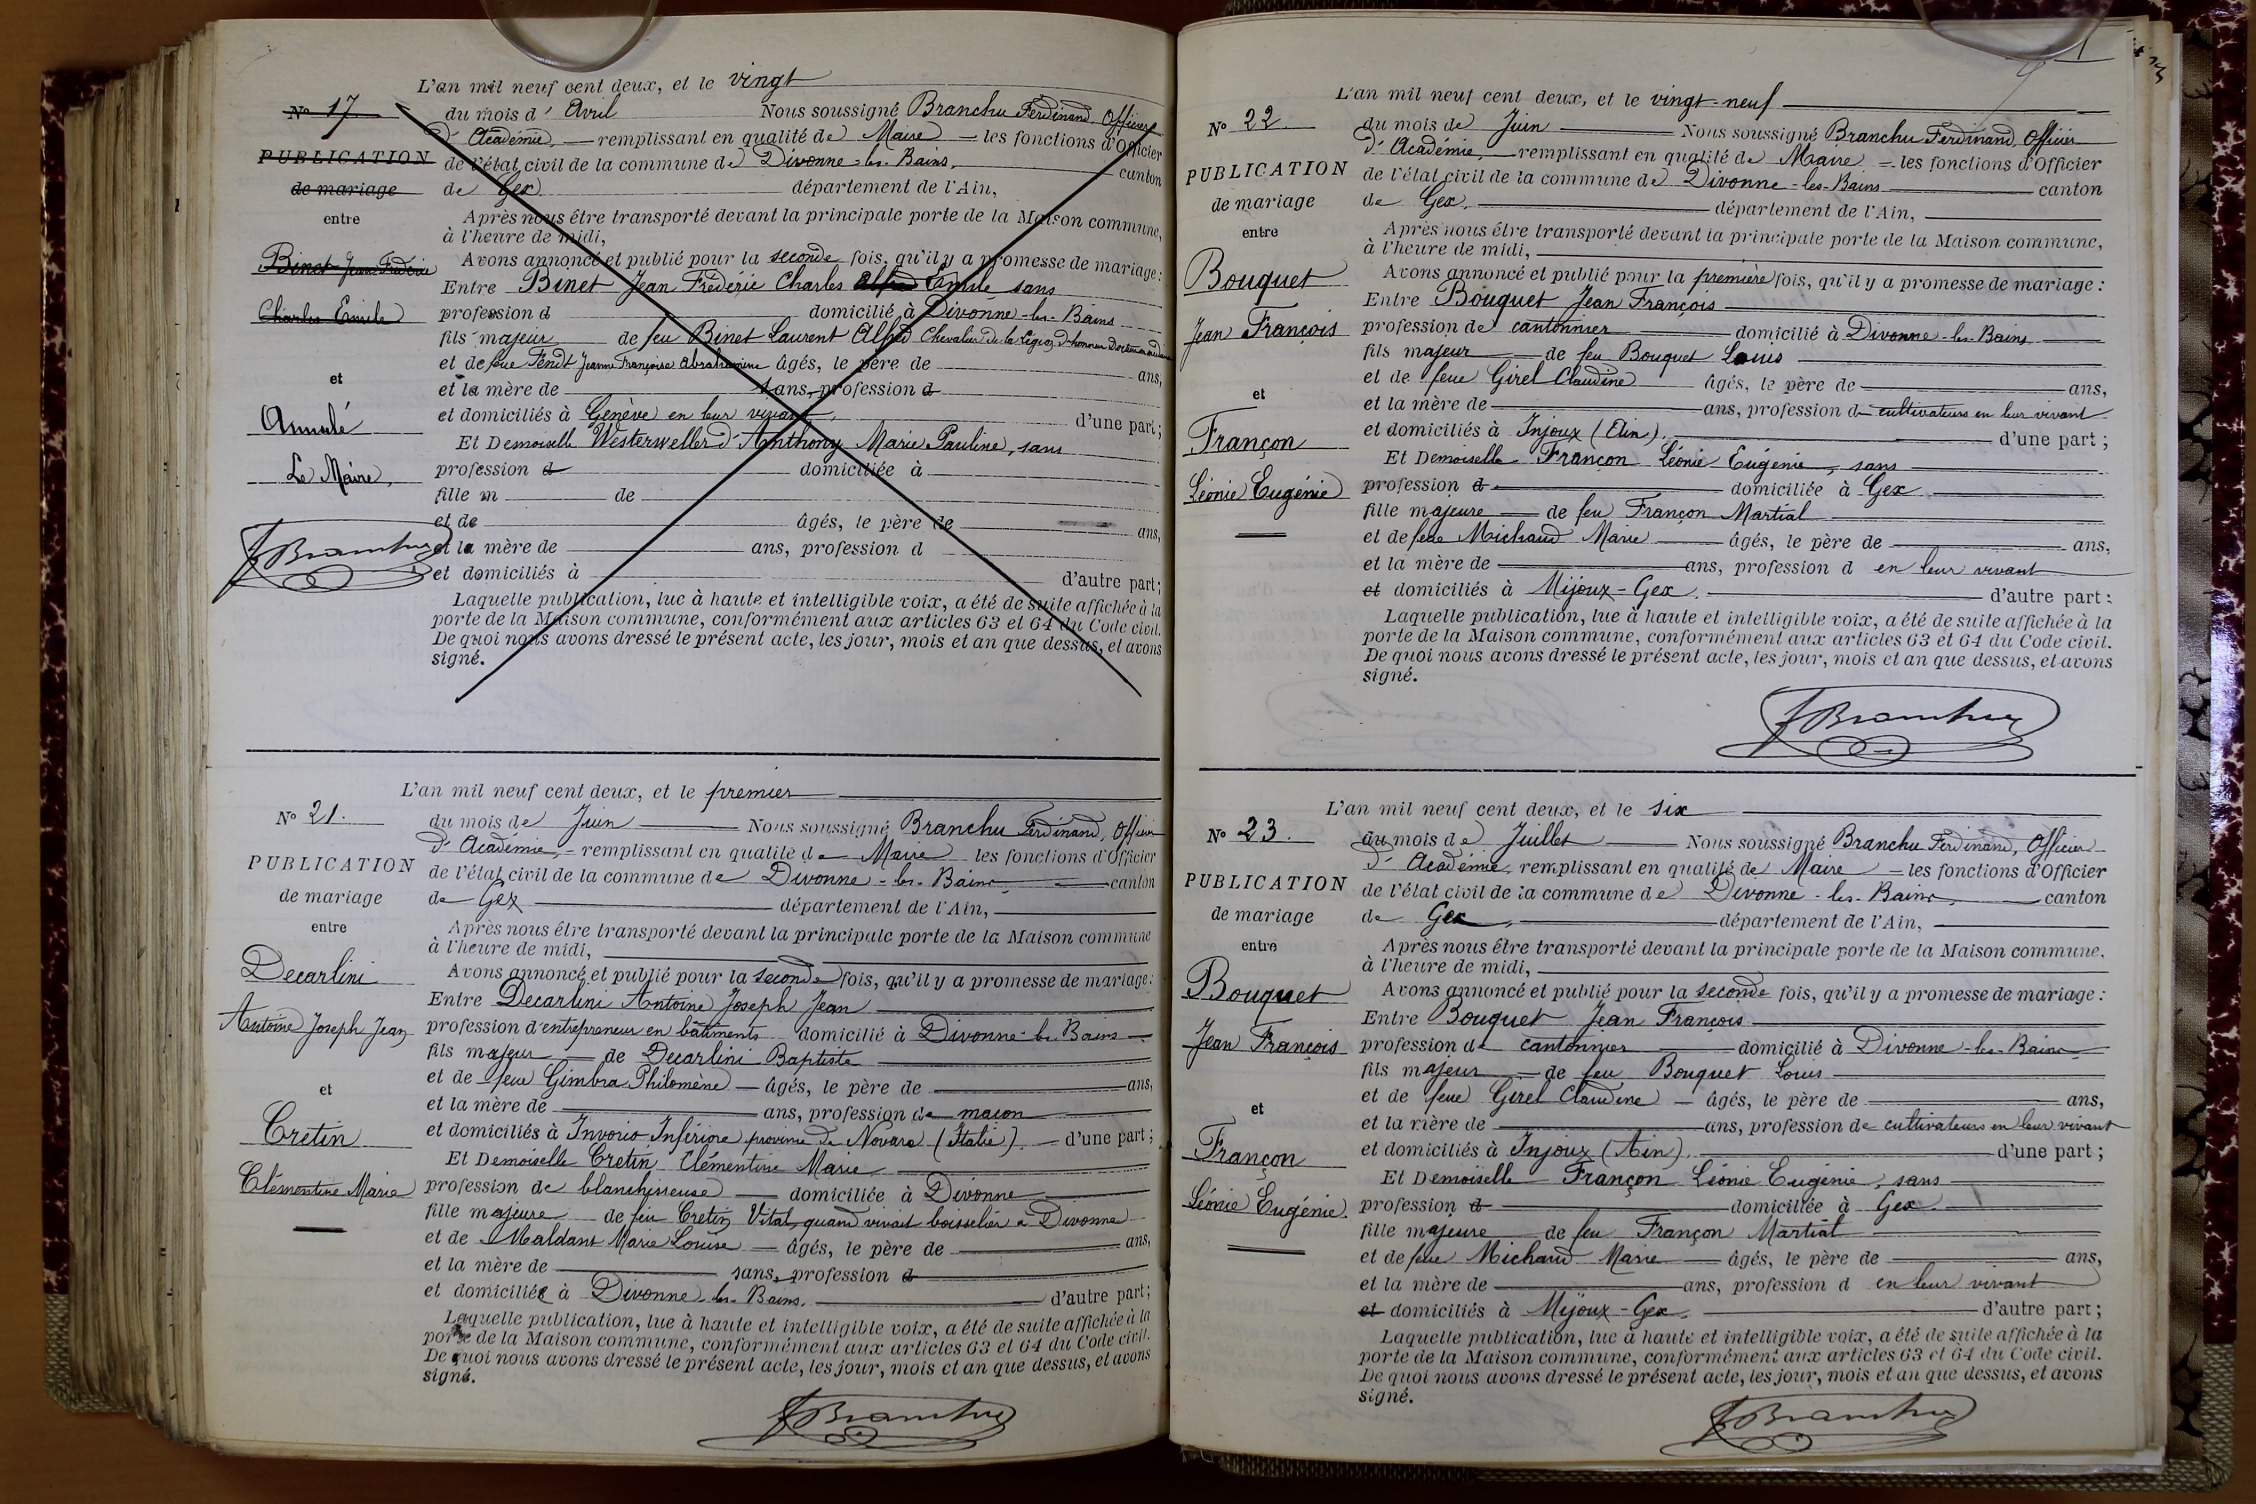 L'an mil neuf cent deux, et le vingt
Nº 17.
du mois d' Avril Nous soussigné Branchu Ferdinand, Officier
d' Académie, remplissant en qualité de Maire les fonctions d'Officier
PUBLICATION
de l'état civil de la commune de Divonne-les-Bains, canton
de mariage
de Gex département de l'Ain,
entre
Après nous être transporté devant la principale porte de la Maison commune,
à l'heure de midi,
Binet Jean Frédéric
Avons annoncé et publié pour la seconde fois, qu'il y a promesse de mariage:
Entre Binet Jean Frédéric Charles Alfred Emile sans
Charles Emile
profession d domicilié à Divonne-les-Bains
fils majeur de feu Binet Laurent Alfred Chevalier de la Légion d'honneur Docteur
et de feue Fendt Jeanne Françoise Abrahamine âgés, le père de ans,
et
et la mère de ans, profession d
Annulé
et domiciliés à Genève en leur vivant, d'une part;
Et Demoiselle Westerweller d'Anthony Marie Pauline, sans
Le Maire,
profession d domiciliée à
fille m de
et de âgés, le père de ans,
FBranchu
et la mère de ans, profession d
et domiciliés à d'autre part;
Laquelle publication, lue à haute et intelligible voix, a été de suite affichée à la
porte de la Maison commune, conformément aux articles 63 et 64 du Code civil.
De quoi nous avons dressé le présent acte, les jour, mois et an que dessus, et avons
signé.
L'an mil neuf cent deux, et le premier
Nº 21.
du mois de Juin Nous soussigné Branchu Ferdinand, Officier
d' Académie, remplissant en qualité de Maire les fonctions d'Officier
PUBLICATION
de l'état civil de la commune de Divonne-les-Bains, canton
de mariage
de Gex département de l'Ain,
entre
Après nous être transporté devant la principale porte de la Maison commune
à l'heure de midi,
Decarlini
Avons annoncé et publié pour la seconde fois, qu'il y a promesse de mariage:
Entre Decarlini Antoine Joseph Jean
Antoine Joseph Jean
profession d'entrepreneur en bâtiments domicilié à Divonne-les-Bains
fils majeur de Decarlini Baptiste
et de feue Gimbra Philomène âgés, le père de ans,
et
et la mère de ans, profession de maçon
Cretin
et domiciliés à Invorio Inferiore province de Novare (Italie). d'une part;
Et Demoiselle Cretin Clémentine Marie
Clémentine Marie
profession de blanchisseuse domiciliée à Divonne
fille majeure de feu Cretin Vital, quand vivait boisselier à Divonne
et de Maldant Marie Louise âgés, le père de ans,
et la mère de sans, profession d
et domiciliée à Divonne-les-Bains, d'autre part;
Laquelle publication, lue à haute et intelligible voix, a été de suite affichée à la
porte de la Maison commune, conformément aux articles 63 et 64 du Code civil.
De quoi nous avons dressé le présent acte, les jour, mois et an que dessus, et avons
signé.
FBranchu
L'an mil neuf cent deux, et le vingt-neuf
Nº 22.
du mois de Juin Nous soussigné Branchu Ferdinand, Officier
d' Académie, remplissant en qualité de Maire les fonctions d'Officier
PUBLICATION
de l'état civil de la commune de Divonne-les-Bains canton
de mariage
de Gex, département de l'Ain,
entre
Après nous être transporté devant la principale porte de la Maison commune,
à l'heure de midi,
Bouquet
Avons annoncé et publié pour la première fois, qu'il y a promesse de mariage:
Entre Bouquet Jean François
Jean François
profession de cantonnier domicilié à Divonne-les-Bains
fils majeur de feu Bouquet Louis
et de feue Girel Claudine âgés, le père de ans,
et
et la mère de ans, profession d cultivateurs en leur vivant
Françon
et domiciliés à Injoux (Ain). d'une part;
Et Demoiselle Françon Léonie Eugénie, sans
Léonie Eugénie
profession d domiciliée à Gex
fille majeure de feu Françon Martial
et de feue Michaud Marie âgés, le père de ans,
et la mère de ans, profession d en leur vivant
et domiciliés à Mijoux-Gex. d'autre part:
Laquelle publication, lue à haute et intelligible voix, a été de suite affichée à la
porte de la Maison commune, conformément aux articles 63 et 64 du Code civil.
De quoi nous avons dressé le présent acte, les jour, mois et an que dessus, et avons
signé.
FBranchu
L'an mil neuf cent deux, et le six
Nº 23.
du mois de Juillet Nous soussigné Branchu Ferdinand, Officier
d' Académie, remplissant en qualité de Maire les fonctions d'Officier
PUBLICATION
de l'état civil de la commune de Divonne-les-Bains, canton
de mariage
de Gex, département de l'Ain,
entre
Après nous être transporté devant la principale porte de la Maison commune.
à l'heure de midi,
Bouquet
Avons annoncé et publié pour la seconde fois, qu'il y a promesse de mariage:
Entre Bouquet Jean François
Jean François
profession de cantonnier domicilié à Divonne-les-Bains
fils majeur de feu Bouquet Louis
et de feue Girel Claudine âgés, le père de ans,
et
et la mère de ans, profession de cultivateurs en leur vivant
Françon
et domiciliés à Injoux (Ain). d'une part;
Et Demoiselle Françon Léonie Eugénie, sans
Léonie Eugénie.
profession d domiciliée à Gex.
fille majeure de feu Françon Martial
et de feue Michaud Marie âgés, le père de ans,
et la mère de ans, profession d en leur vivant
et domiciliés à Mijoux-Gex. d'autre part;
Laquelle publication, lue à haute et intelligible voix, a été de suite affichée à la
porte de la Maison commune, conformément aux articles 63 et 64 du Code civil.
De quoi nous avons dressé le présent acte, les jour, mois et an que dessus, et avons
signé.
FBranchu